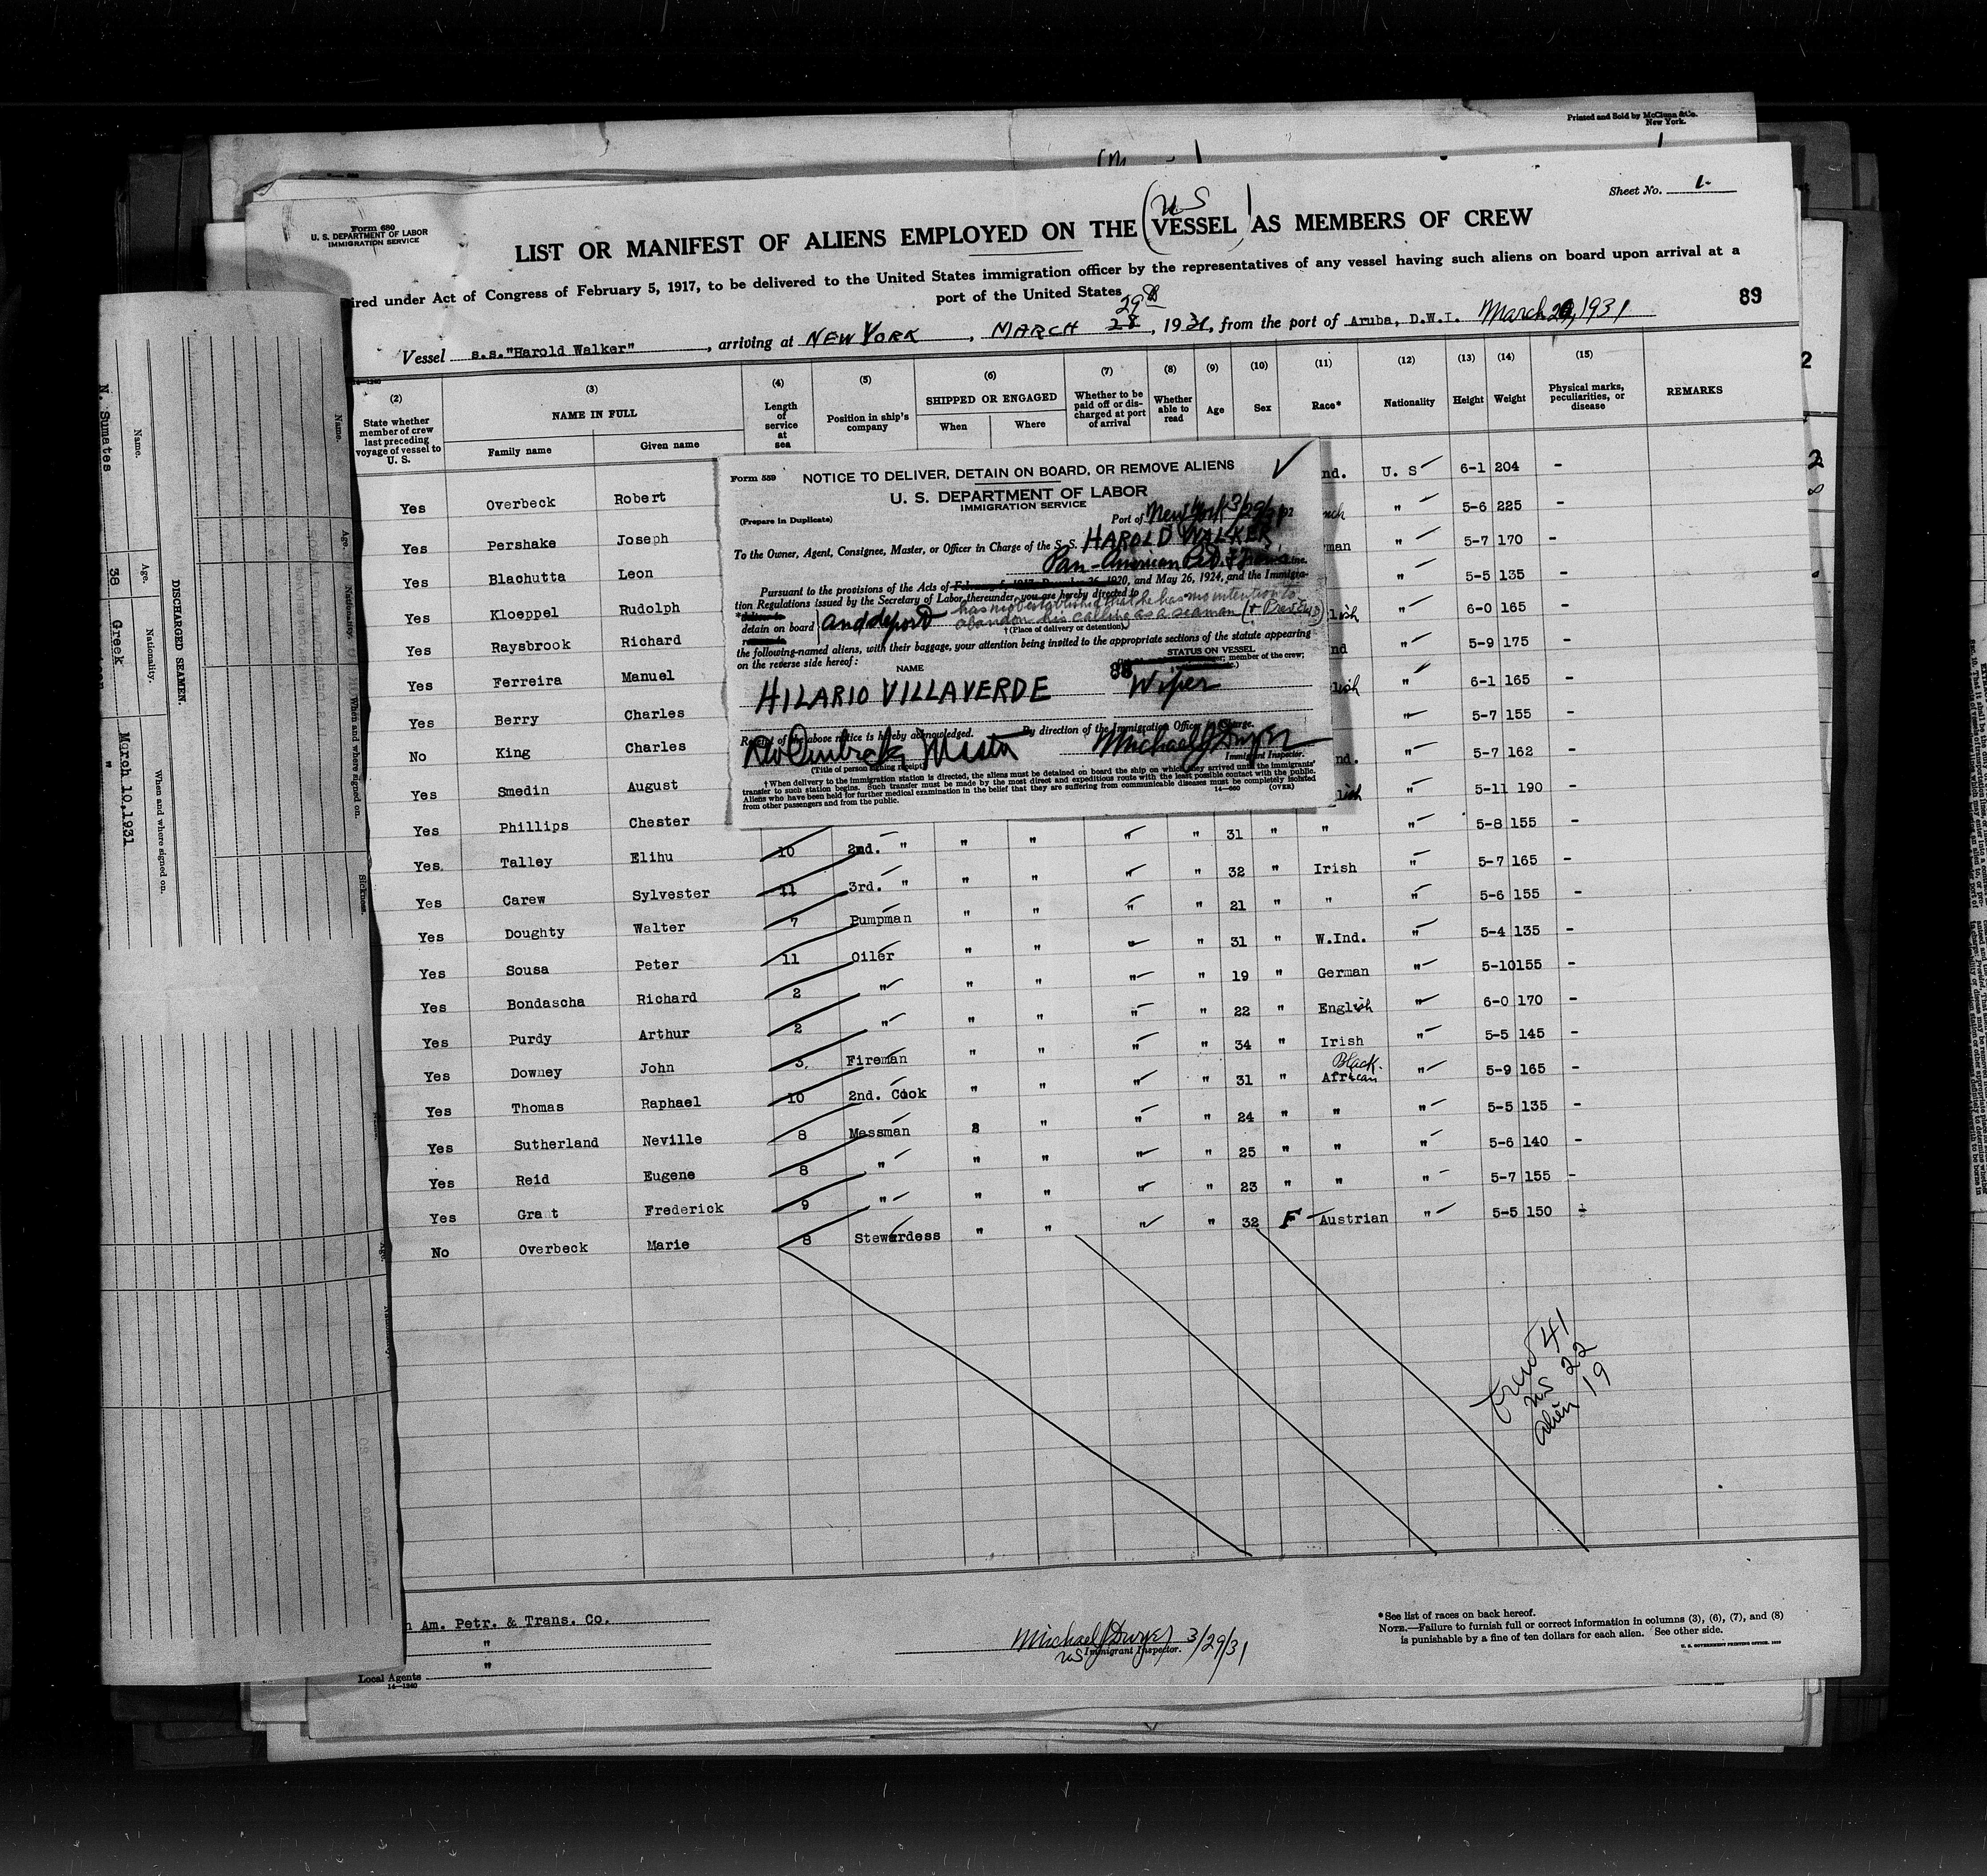 Printed and Sold by McClunn & Co.
New York.
Sheet No. 1.
Form 680
U. S. DEPARTMENT OF LABOR
IMMIGRATION SERVICE
U S
LIST OR MANIFEST OF ALIENS EMPLOYED ON THE (VESSEL) AS MEMBERS OF CREW
ired under Act of Congress of February 5, 1917, to be delivered to the United States immigration officer by the representatives of any vessel having such aliens on board upon arrival at a
port of the United States
89
29th
Vessel s.s."Harold Walker", arriving at NEW YORK, MARCH 28, 1931, from the port of Aruba, D.W.I. March 20, 1931
14—1240
(2) (3) (4) (5) (6) (7) (8) (9) (10) (11) (12) (13) (14) (15)
State whether member of crew last preceding voyage of vessel to U. S.
NAME IN FULL
Family name Given name
Length of service at sea
Position in ship's company
SHIPPED OR ENGAGED
When Where
Whether to be paid off or discharged at port of arrival
Whether able to read
Age Sex Race* Nationality Height Weight
Physical marks, peculiarities, or disease
REMARKS
Yes Overbeck Robert nd. U. S 6-1 204 -
Yes Pershake Joseph nch " 5-6 225 -
Yes Blachutta Leon man " 5-7 170 -
Yes Kloeppel Rudolph " 5-5 135 -
Yes Raysbrook Richard lish " 6-0 165 -
Yes Ferreira Manuel nd " 5-9 175 -
Yes Berry Charles lish " 6-1 165 -
No King Charles " 5-7 155 -
Yes Smedin August nd. " 5-7 162 -
Yes Phillips Chester lish " 5-11 190 -
Yes. Talley Elihu 10 2nd. " " " " " 31 " " " 5-8 155 -
Yes Carew Sylvester 11 3rd. " " " " " 32 " Irish " 5-7 165 -
Yes Doughty Walter 7 Pumpman " " " " 21 " " " 5-6 155 -
Yes Sousa Peter 11 Oiler " " " " 31 " W.Ind. " 5-4 135 -
Yes Bondascha Richard 2 " " " " " 19 " German " 5-10 155 -
Yes Purdy Arthur 2 " " " " " 22 " English " 6-0 170 -
Yes Downey John 3. Fireman " " " " 34 " Irish " 5-5 145 -
Black.
Yes Thomas Raphael 10 2nd. Cook " " " " 31 " African " 5-9 165 -
Yes Sutherland Neville 8 Messman " " " " 24 " " " 5-5 135 -
Yes Reid Eugene 8 " " " " " 25 " " " 5-6 140 -
Yes Grant Frederick 9 " " " " " 23 " " " 5-7 155 -
No Overbeck Marie 8 Stewardess " " " " 32 F Austrian " 5-5 150 -
Form 559 NOTICE TO DELIVER, DETAIN ON BOARD, OR REMOVE ALIENS
U. S. DEPARTMENT OF LABOR
IMMIGRATION SERVICE
(Prepare in Duplicate) Port of New York 3/29/31
To the Owner, Agent, Consignee, Master, or Officer in Charge of the S. S. HAROLD WALKER
Pan-American Pet. & Trans. Line.
Pursuant to the provisions of the Acts of February 5, 1917, December 26, 1920, and May 26, 1924, and the Immigra-
tion Regulations issued by the Secretary of Labor thereunder, you are hereby directed to
has not established that he has no intention to
detain on board and deport abandon his calling as a seaman
†(Place of delivery or detention)
the following-named aliens, with their baggage, your attention being invited to the appropriate sections of the statute appearing
on the reverse side hereof:
NAME STATUS ON VESSEL
member of the crew;
88
HILARIO VILLAVERDE Wiper
Receipt of the above notice is hereby acknowledged. By direction of the Immigration Officer in Charge.
Master Michael J Dwyer
(Title of person signing receipt) Immigrant Inspector.
†When delivery to the immigration station is directed, the aliens must be detained on board the ship on which they arrived until the immigrants'
transfer to such station begins. Such transfer must be made by the most direct and expeditious route with the least possible contact with the public.
Aliens who have been held for further medical examination in the belief that they are suffering from communicable diseases must be completely isolated
from other passengers and from the public. 14—660 (OVER)
Crew 41
US 22
Alien 19
n Am. Petr. & Trans. Co.
"
"
Local Agents
14—1240
Michael J Dwyer 3/29/31
US Immigrant Inspector.
*See list of races on back hereof.
NOTE.—Failure to furnish full or correct information in columns (3), (6), (7), and (8)
is punishable by a fine of ten dollars for each alien. See other side.
U. S. GOVERNMENT PRINTING OFFICE
DISCHARGED SEAMEN.
Name. Age. Nationality. When and where signed on.
N. Sumates 38 Greek March 10, 1931
Name. Age. Nationality. When and where signed on. Sickness.
2
2